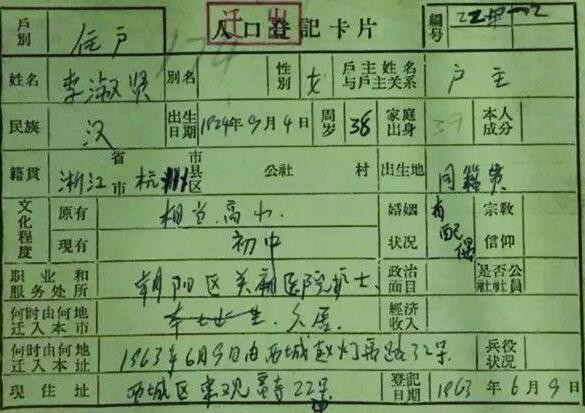 迁出
人口登記卡片
編号
戶別 住户
姓名 李淑贤 別名 性別 女 戶主姓名与戶主关系 户主
民族 汉 出生日期 1924年9月4日 周岁 38 家庭出身 本人成分
籍貫 浙江 省市 杭州 市县区 公社 村 出生地 同籍贯
文化程度 原有 相当高小 婚姻状况 有配偶 宗教信仰
現有 初中
职业和服务处所 朝阳区关厢医院护士 政治面目 是否公社社員
何时由何地迁入本市 久居 經济收入
何时由何地迁入本址 1963年6月9日由西城 32号 兵役状况
現住址 西城区东观音寺22号 登記日期 1963年6月9日